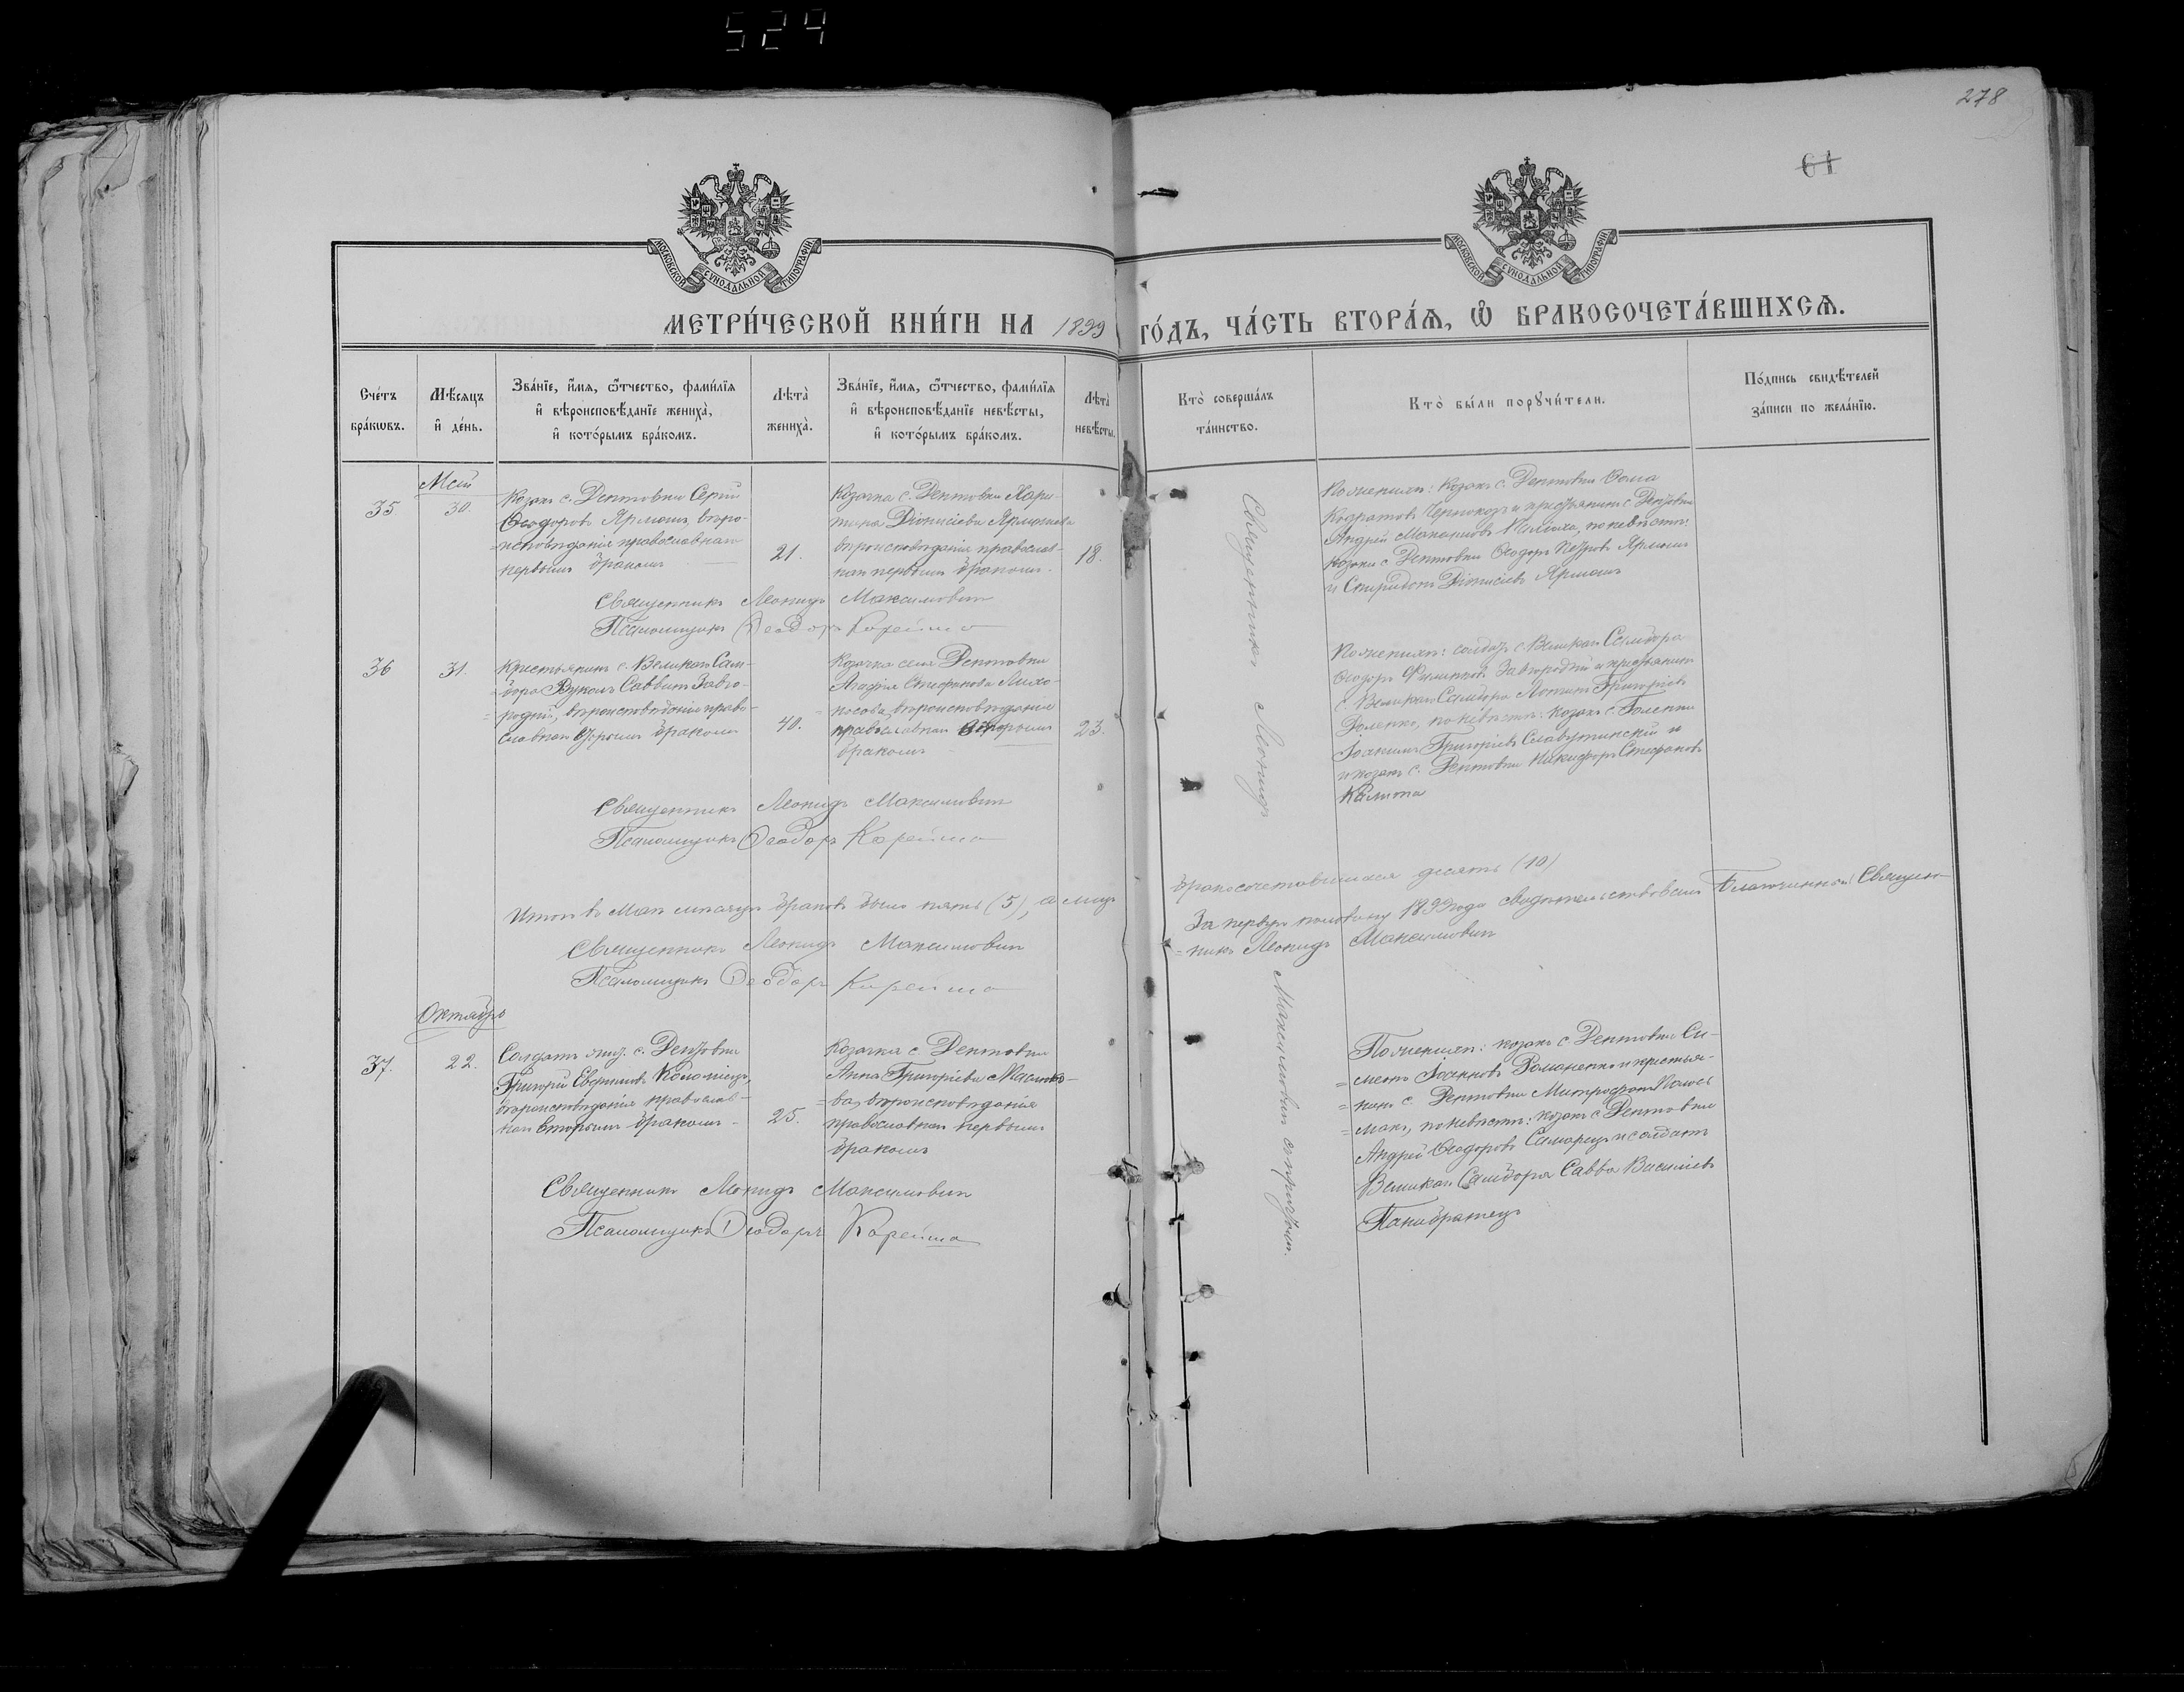 524
278
61
МОСКОВСКОЙ СУНОДАЛЬНОЙ ТИПОГРАФІИ
МОСКОВСКОЙ СУНОДАЛЬНОЙ ТИПОГРАФІИ
МЕТРИ́ЧЕСКОЙ КНИ́ГИ НА 1899 ГО́ДЪ, ЧА́СТЬ ВТОРА́Я, Ѡ҆ БРАКОСОЧЕТА́ВШИХСѦ.
Сче́тъ бра́кѡвъ.
Мѣ́сяцъ и҆ де́нь.
Зва́нїе, и҆́мя, ѻ҆́тчество, фами́лїя
и҆ вѣроисповѣ́данїе жениха̀,
и҆ кото́рымъ бра́комъ.
Лѣта̀ жениха̀.
Зва́нїе, и҆́мя, ѻ҆́тчество, фами́лїя
и҆ вѣроисповѣ́данїе невѣ́сты,
и҆ кото́рымъ бра́комъ.
Лѣта̀ невѣ́сты.
Кто̀ соверша́лъ та́инство.
Кто̀ бы́ли порꙋчи́тели.
По́дпись свидѣ́телей за́писи по жела́нїю.
Май
35
30.
Козакъ с. Дептовки Сергій
Ѳеодоровъ Ярмошъ, вѣро-
исповѣданія православнаго
первымъ бракомъ
21.
Козачка с. Дептовки Хари-
тина Діонисіева Ярмошева
вѣроисповѣданія православ-
наго первымъ бракомъ.
18.
Священникъ Леонидъ Максимовичъ
По женихѣ: козакъ с. Дептовки Ѳома
Кодратовъ Чернокозъ и крестьянинъ с. Дептовки
Андрей Макаріовъ, по невѣстѣ:
козаки с. Дептовки Ѳеодоръ Петровъ Ярмошъ
и Спиридонъ Діонисіевъ Ярмошъ
Псаломщикъ Ѳеодоръ Корейша
36
31.
Крестьянинъ с. Великаго Сам-
бора Вуколъ Саввинъ Завго-
родній, вѣроисповѣданія право-
славнаго вторымъ бракомъ
40.
Козачка села Дептовки
Агафія Стефанова Лихо-
носова, вѣроисповѣданія
православнаго вторымъ
бракомъ
23.
По женихѣ: солдатъ с. Великаго Самбора
Ѳеодоръ Филиповъ Завгородній и крестьянинъ
с. Великаго Самбора Логинъ Григоріевъ
по невѣстѣ: козакъ с. Голенки
Іоакимъ Григоріевъ Славутинскій и
и козакъ с. Дептовки Никифоръ Стефановъ
Калита
Священникъ Леонидъ Максимовичъ
Псаломщикъ Ѳеодоръ Корейша
Итого въ Маѣ мѣсяцѣ браковъ было пять (5), а лицъ
бракосочетавшихся десять (10)
За первую половину 1899 года свидѣтельствовалъ Благочинный Священ-
никъ Леонидъ Максимовичъ
Священникъ Леонидъ Максимовичъ
Псаломщикъ Ѳеодоръ Корейша
Октябрь
37.
22.
Солдатъ с. Дептовки
Григорій Коломіецъ,
вѣроисповѣданія православ-
наго вторымъ бракомъ
25.
Козачка с. Дептовки
Анна Григоріева
вѣроисповѣданія
православнаго первымъ
бракомъ
По женихѣ: козакъ с. Дептовки Си-
меонъ Іоанновъ Романенко и крестья-
нинъ с. Дептовки Митрофанъ
по невѣстѣ: козакъ с. Дептовки
Андрей Ѳеодоровъ и солдатъ
Великаго Самбора Савва Василіевъ
Панибратецъ
Священникъ Леонидъ Максимовичъ
Псаломщикъ Ѳеодоръ Корейша
Священникъ Леонидъ Максимовичъ съ причтомъ.